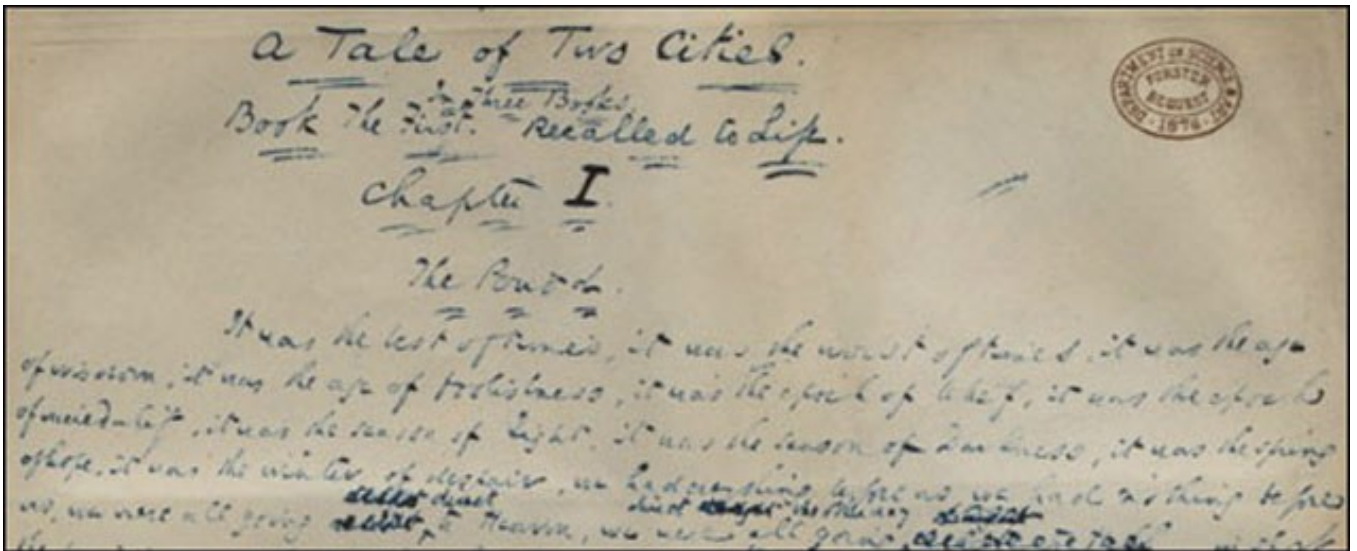 A Tale of Two Cities.
In Three Books.
Book the First. Recalled to Life.
Chapter I.
The Period.
It was the best of times, it was the worst of times, it was the age
of wisdom, it was the age of foolishness, it was the epoch of belief, it was the epoch
of incredulity, it was the season of Light, it was the season of Darkness, it was the spring
of hope, it was the winter of despair, we had everything before us, we had nothing before
direct
us, we were all going to Heaven, we were all going
DEPARTMENT OF SCIENCE & ART
FORSTER
BEQUEST
1876